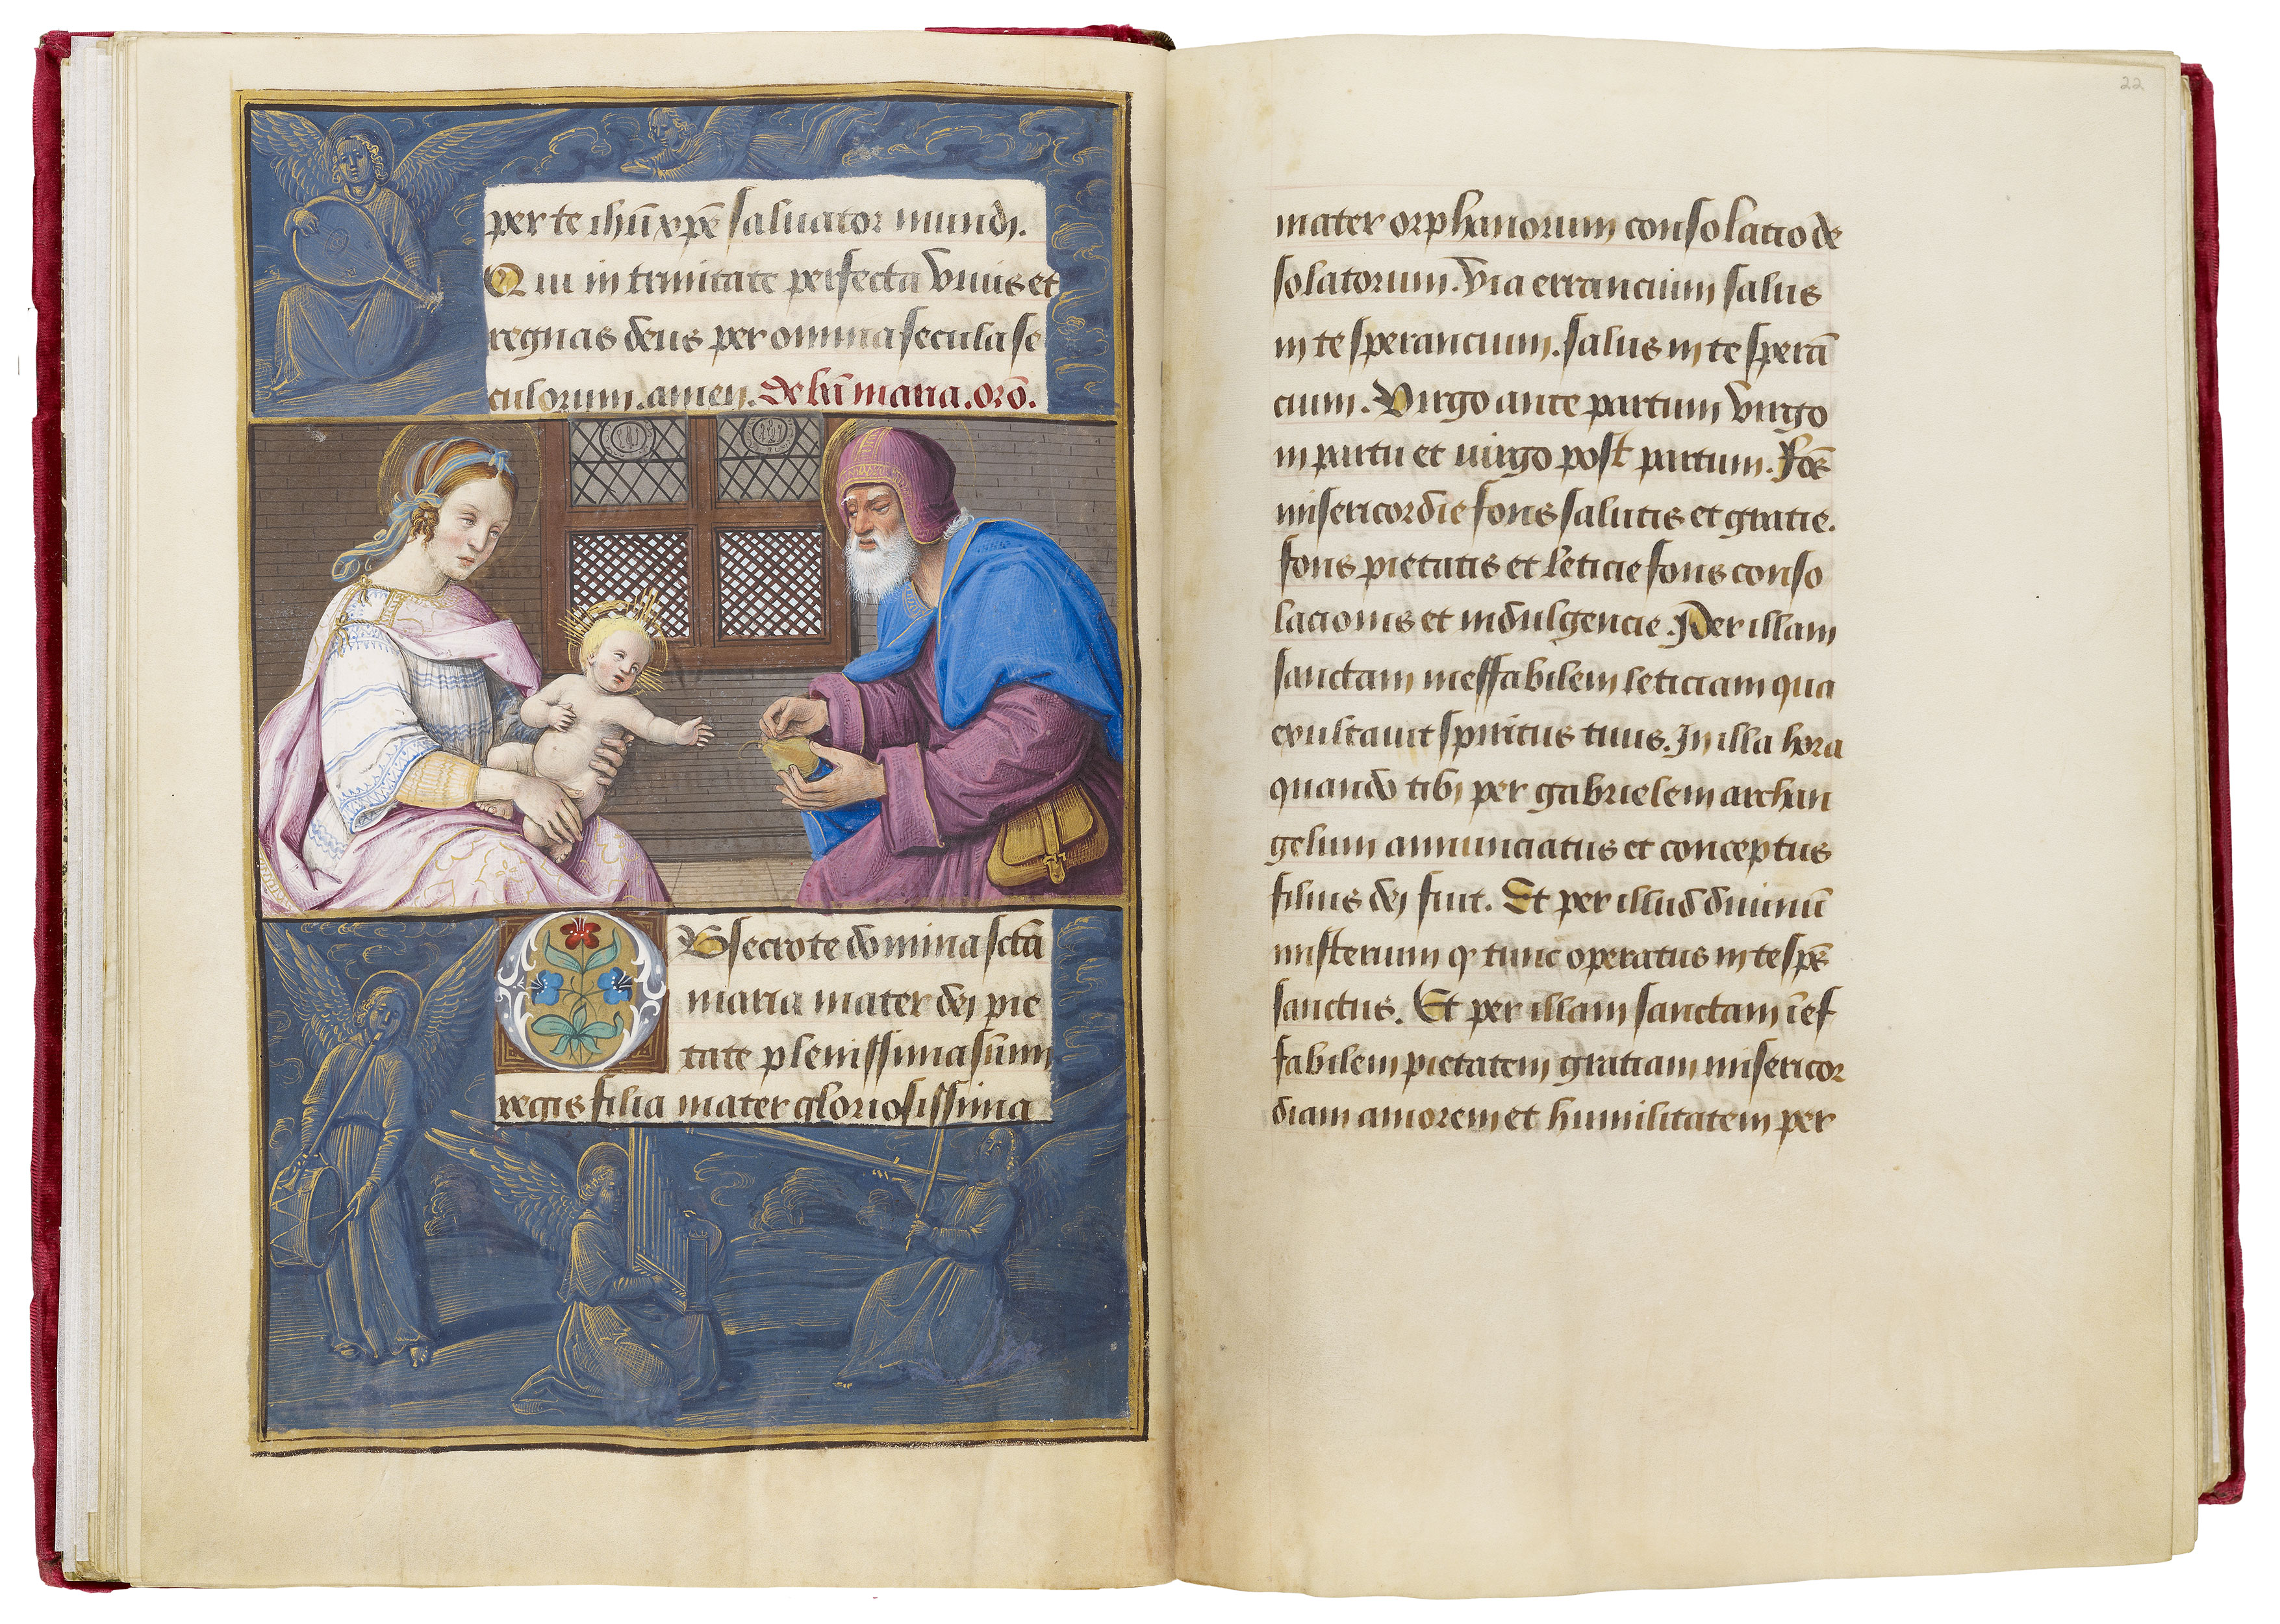 per te ihũ xpē saluator mundi.
Qui in trinitate perfecta viuis et
regnas deus per omnia secula se
culorum. amen. De btã maria. orõ.
Obsecro te domina sctã
maria mater dei pie
tate plenissima sũmi
regis filia mater gloriosissima
22
mater orphanorum consolatio de
solatorum. via errancium salus
in te sperancium. salus in te sperã
cium. Virgo ante partum virgo
in partu et virgo post partum. Fõs
misericordie fons salutis et gratie.
fons pietatis et leticie fons conso
lacionis et indulgencie. Per illam
sanctam ineffabilem leticiam qua
exultauit spiritus tuus. In illa hora
quando tibi per gabrielem archan
gelum annunciatus et conceptus
filius dei fuit. Et per illud diuinũ
misterium qͥ tunc operatus in te spũs
sanctus. Et per illam sanctam ĩef
fabilem pietatem gratiam misericor
diam amorem et humilitatem per